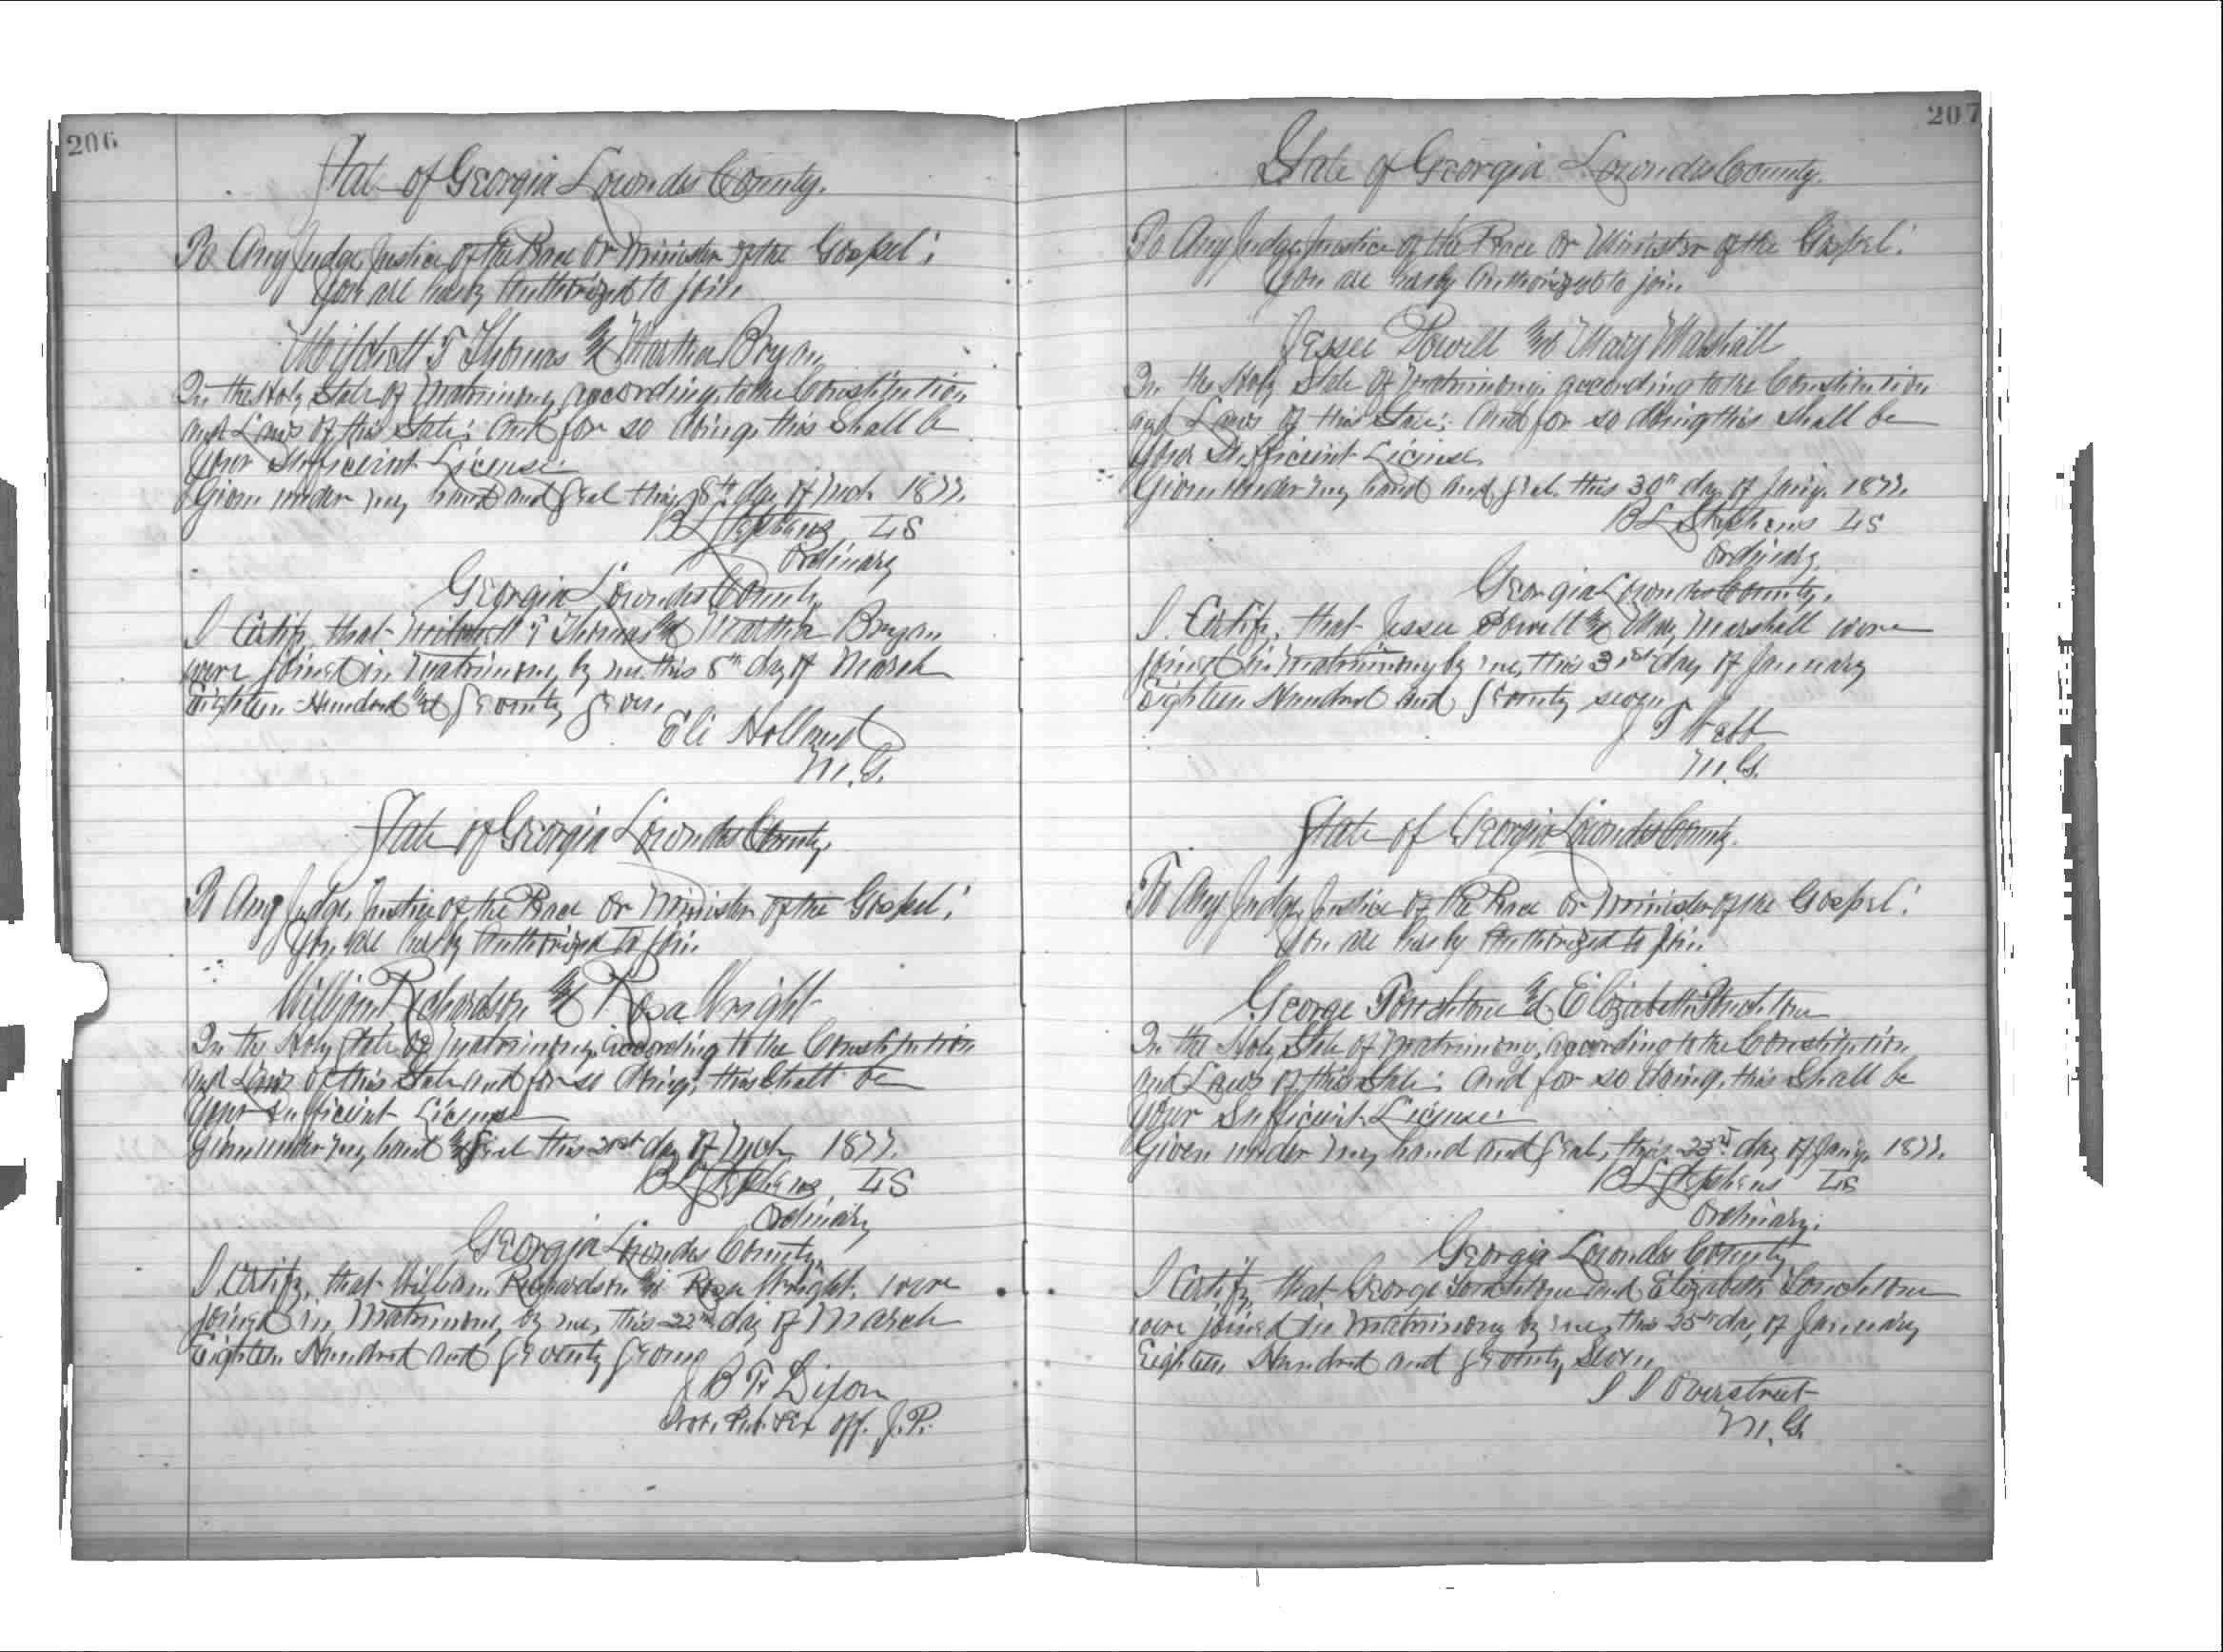 206
State of Georgia Lowndes County.
To Any Judge, Justice of the Peace or Minister of the Gospel:
You are hereby Authorized to join
Mitchell T Thomas and Martha Bryan
In the Holy State of Matrimony, according to the Constitution
and Laws of this State; and for so doing, this Shall be
Your Sufficient License.
Given under my hand and Seal this 8th day of Mch 1877.
B L Stephens LS
Ordinary
Georgia Lowndes County
I Certify, that Mitchell T Thomas and Martha Bryan
were joined in Matrimony by me this 8th day of March
Eighteen Hundred and Seventy Seven
Eli Holland
M.G.
State of Georgia Lowndes County.
To Any Judge, Justice of the Peace or Minister of the Gospel:
You are hereby Authorized To join
William Richardson and Rosa Wright
In the Holy State of Matrimony, according to the Constitution
and Laws of this State and for so doing, this Shall be
Your Sufficient License
Given under my hand and Seal this 21st day of Mch 1877.
B L Stephens LS
Ordinary
Georgia Lowndes County.
I Certify, that William Richardson and Rosa Wright, were
joined in Matrimony, by me, this 22nd day of March
Eighteen Hundred and Seventy Seven
J B F Dixon
Not. Pub. Ex off. J.P.
207
State of Georgia Lowndes County.
To Any Judge, Justice of the Peace or Minister of the Gospel:
You are hereby Authorized to join
Jessee Powell and Mary Marshall
In the Holy State of Matrimony, according to the Constitution
and Laws of this State; and for so doing this Shall be
Your Sufficient License.
Given under my hand and Seal this 30th day of Jany. 1877.
B L Stephens LS
Ordinary.
Georgia Lowndes County.
I Certify, that Jessee Powell and Mary Marshall were
joined in Matrimony by me, this 31st day of January
Eighteen Hundred and Seventy seven
J T Webb
M.G.
State of Georgia Lowndes County.
To Any Judge, Justice of the Peace or Minister of the Gospel:
You are hereby Authorized to join
George Touchtone and Elizabeth Touchtone
In the Holy State of Matrimony, according to the Constitution
and Laws of this State; and for so doing, this Shall be
Your Sufficient License:
Given under my hand and Seal, this 23rd day of Jany. 1877.
B L Stephens LS
Ordinary.
Georgia Lowndes County
I Certify, that George Touchtone and Elizabeth Touchtone
were joined in Matrimony by me, this 25th day of January
Eighteen Hundred and Seventy Seven
Overstreet
M.G.